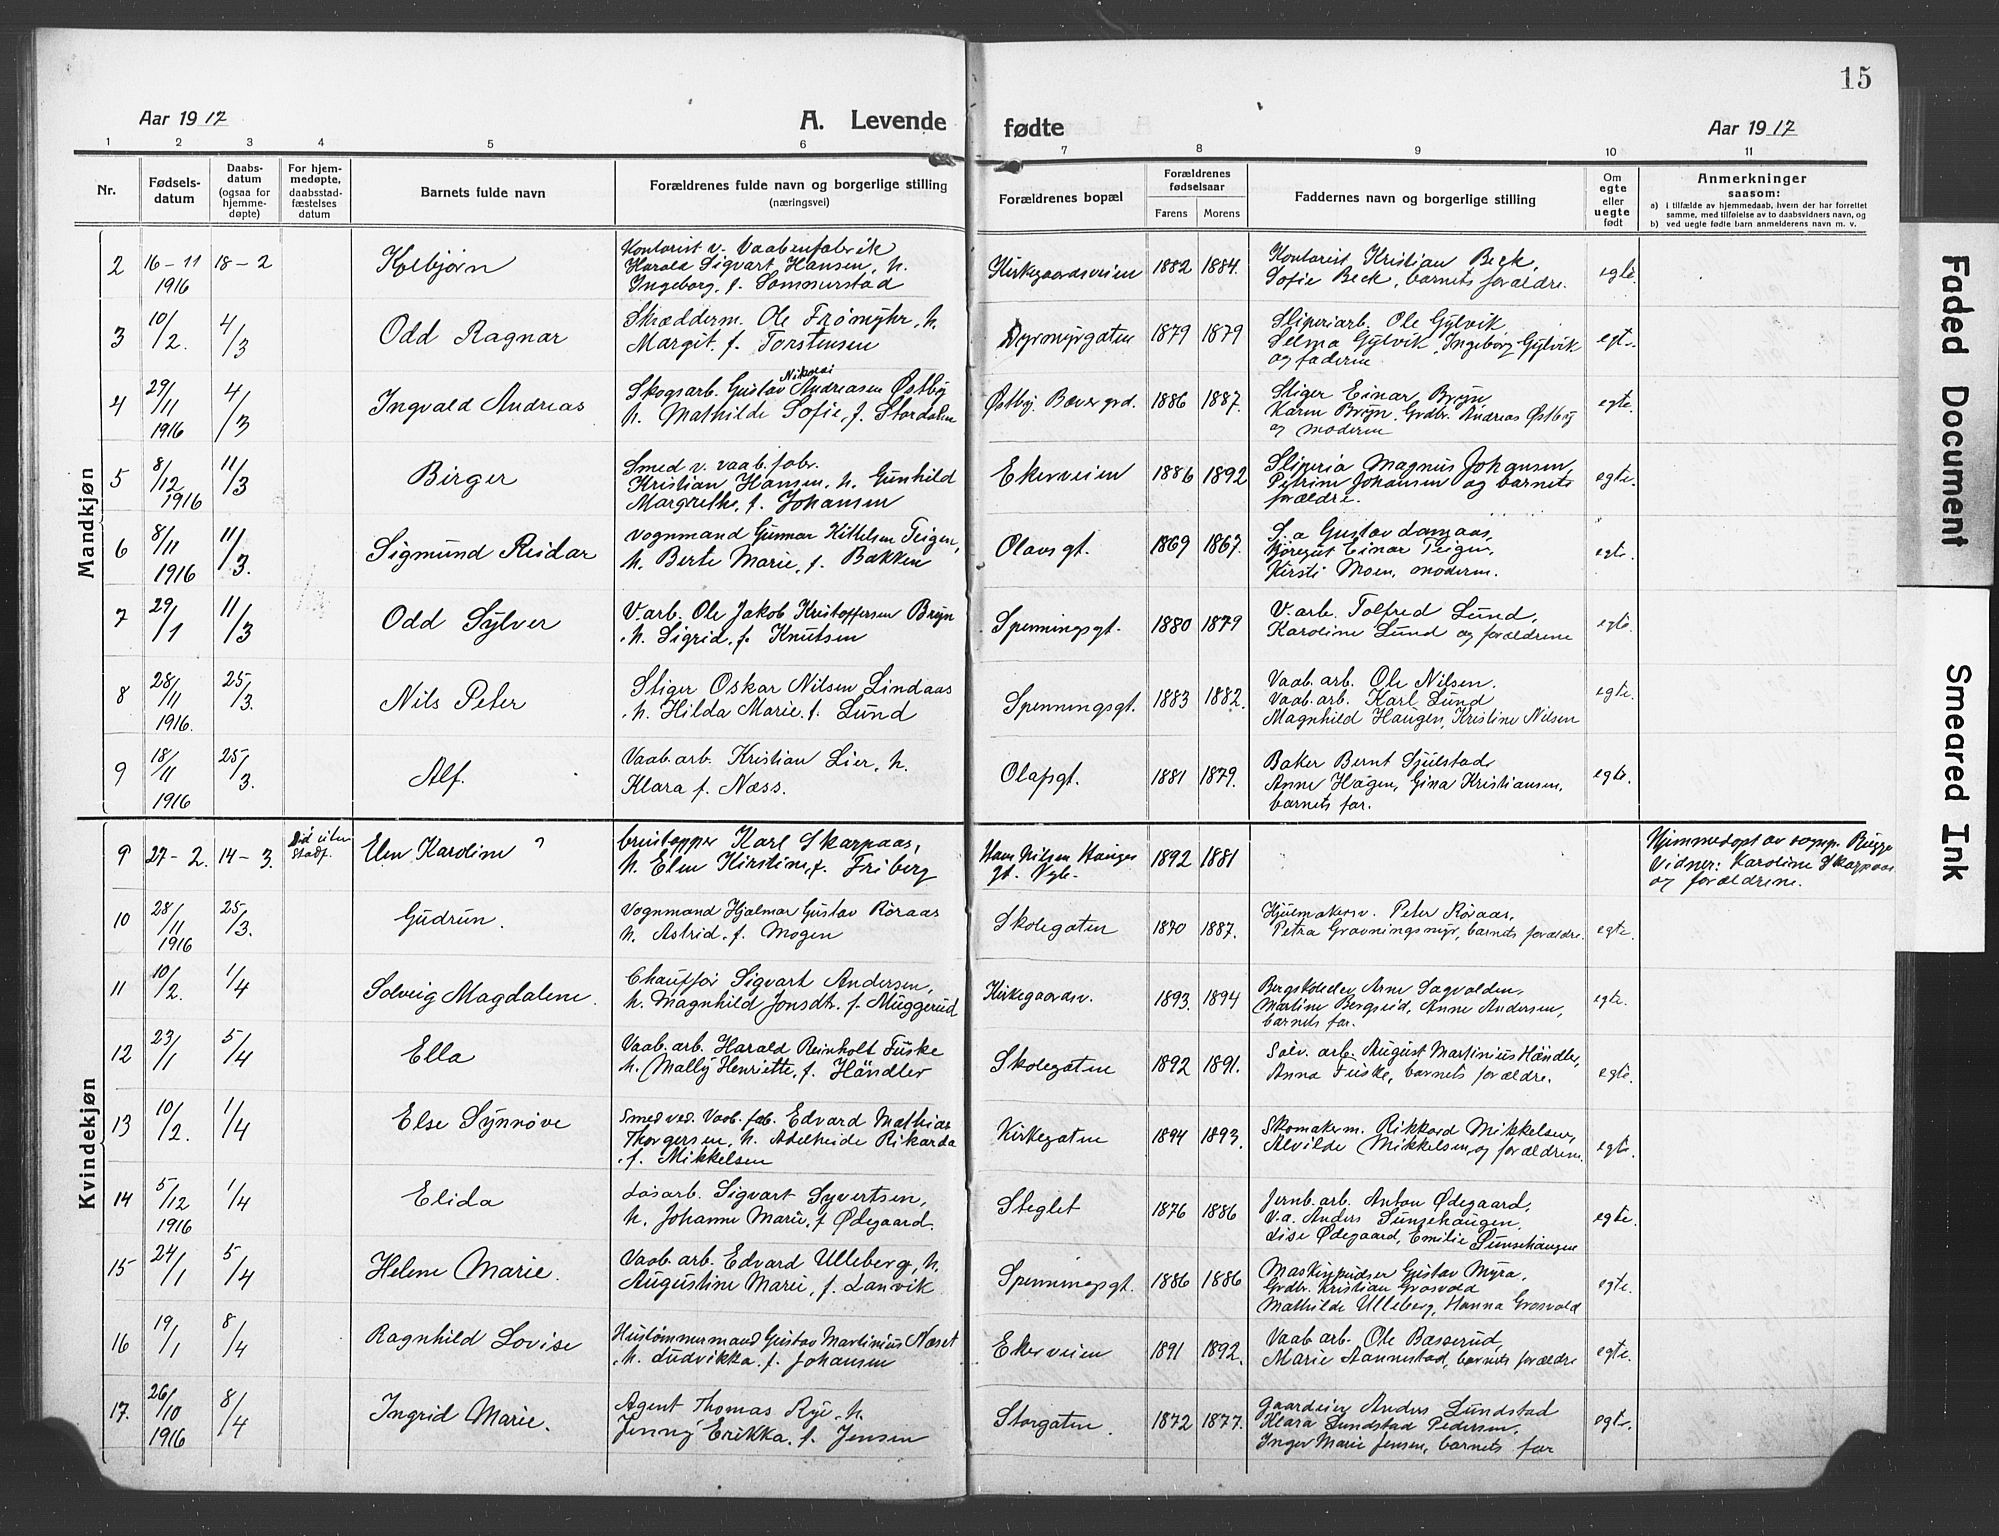 15
Aar 1917
A. Levende fødte
Aar 1917
1 2 3 4 5 6 7 8 9 10 11
Nr.
Fødsels-
datum
Daabs-
datum
(ogsaa for
hjemme-
døpte)
For hjem-
medøpte,
daabsstad-
fæstelses
datum
Barnets fulde navn
Forældrenes fulde navn og borgerlige stilling
(næringsvei)
Forældrenes bopæl
Forældrenes
fødselsaar
Farens Morens
Faddernes navn og borgerlige stilling
Om
egte
eller
uegte
født
Anmerkninger
saasom:
a) i tilfælde av hjemmedaab, hvem der har forrettet
samme, med tilføielse av to daabsvidners navn, og
b) ved uegte fødte barn anmelderens navn m. v.
Mandkjøn
2 16-11 1916 18-2 Kolbjørn
Kontorist v. Vaabenfabrik
Harald Sigvart Hansen, h.
Ingeborg, f. Sommerstad
Kirkegaardsveien 1882 1884.
Kontorist Kristian Beck,
Sofie Beck, barnets forældre.
egte.
3 10/2. 4/3 Odd Ragnar
Skrædderm. Ole Frømyhr, h.
Margit. f. Torstensen
Dyrmyrgaten 1879 1879
Sliperiarb. Ole Gylvik
Selma Gylvik, Ingeborg Gylvik
og faderne
egte.
4 29/11 1916 4/3 Ingvald Andreas
Nikolai
Skogsarb. Gustav Andreasen Østby
h. Mathilde Sofie, f. Stordalen
Østby, Bævergrd. 1886 1887.
Stiger Einar Bryn,
Karen Bryn. Grdbr. Andreas Østby
og moderne
egte.
5 8/12 1916 11/3 Birger
Smed v. vaab. fabr.
Kristian Hansen, h. Gunhild
Margrethe, f. Johansen
Ekerveien 1886 1892
Sliperia Magnus Johansen,
Petrine Johansen og barnets
forældre.
egte.
6 8/11 1916 11/3. Sigmund Reidar
Vognmand Gunnar Kittelsen Teigen,
h. Berte Marie, f. Bakken
Olavsgt. 1869 1867.
S.a Gustav
Einar Teigen,
Kirsti Moen, moderne.
egte.
7 29/1 11/3 Odd Sylver
V. arb. Ole Jakob Kristoffersen Bryn
h. Sigrid, f. Knutsen
Spenningsgt. 1880 1879
V. arb. Tolfred Lund,
Karoline Lund og forældrene
egte.
8 28/11 1916. 25/3. Nils Peter
Stiger Oskar Nilsen Lindaas
h. Hilda Marie. f. Lund
Spenningsgt. 1883 1882.
Vaab. arb. Ole Nilsen.
Vaab. arb. Karl Lund
Magnhild Haugen, Kristine Nilsen
egte.
9 18/11 1916 25/3. Alf.
Vaab. arb. Kristian Lier, h.
Klara f. Næss.
Olafsgt. 1881 1879.
Baker Bernt Sjulstad
Anne Hagen, Gina Kristiansen,
barnets far.
egte.
Kvindekjøn
9 27-2. 14-3. Død uten
stadf. Elen Karoline ?
Karl Skarpaas,
h. Elen Kirstine, f. Friberg
Hans Nilsen Hauges
gt. 1892 1881
Hjemmedøpt av sognpr. Bugge
Vidner: Karoline Skarpaas
og forældrene.
10 28/11 1916 25/3. Gudrun.
Vognmand Hjalmar Gustav Røraas
h. Astrid. f. Mogen
Skolegaten 1890 1887.
Hjulmakersv. Peter Røraas,
Petra Gravningsmyr, barnets forældre.
egte.
11 10/2. 1/4 Solveig Magdalene.
Chauffør Sigvart Andersen,
h. Magnhild Jonsdt. f. Muggerud
Kirkegaardsv. 1893. 1894
Arne Sagvolden,
Martine Bergseid, Anne Andersen,
barnets far.
egte.
12 23/1 5/4 Ella
Vaab. arb. Harald Reinholt Fuske
h. Mally Henriette, f. Händler
Skolegaten 1892 1891.
Sølv. arb. August Martinius Händler,
Anna Fuske, barnets forældre.
egte.
13 10/2. 1/4 Else Synnøve
Smed ved. Vaab. fab. Edvard Mathias
Thorgersen, h. Adelheide Rikarda
f. Mikkelsen
Kirkegaten 1894 1893.
Skomakerm. Rikkard Mikkelsen,
Alvilde Mikkelsen og forældrene.
egte.
14 5/12 1916 1/4 Elida
Løsarb. Sigvart Syvertsen,
h. Johanne Marie, f. Ødegaard.
Steglet 1876 1886
Jernb. arb. Anton Ødegaard,
V.a. Anders Sunsehaugen.
Lise Ødegaard, Emilie Sunsehaugen
egte.
15 24/1 5/4 Helene Marie.
Vaab. arb. Edvard Ulleberg, h.
Augustine Marie, f. Lanvik.
Spenningsgt. 1886 1886
Maskinpudser Gustav Myra,
Grdbr. Kristian Grosvold
Mathilde Ulleberg, Hanna Grosvold
egte.
16 19/1 8/4 Ragnhild Lovise
Hustømmermand Gustav Martinius Næset
h. Ludvikka. f. Johansen
Ekerveien 1891 1892.
Vaab arb. Ole Basserud,
Marie Aannestad, barnets forældre
egte.
17. 26/10 1916 8/4 Ingrid Marie.
Agent Thomas Rye. h.
Jenny Erikka. f. Jensen
Storgaten. 1872 1877.
Gaardeier Anders Lundstad
Klara Lundstad Pedersen,
Inger Marie Jensen, barnets far
egte.
Faded Document
Smeared Ink